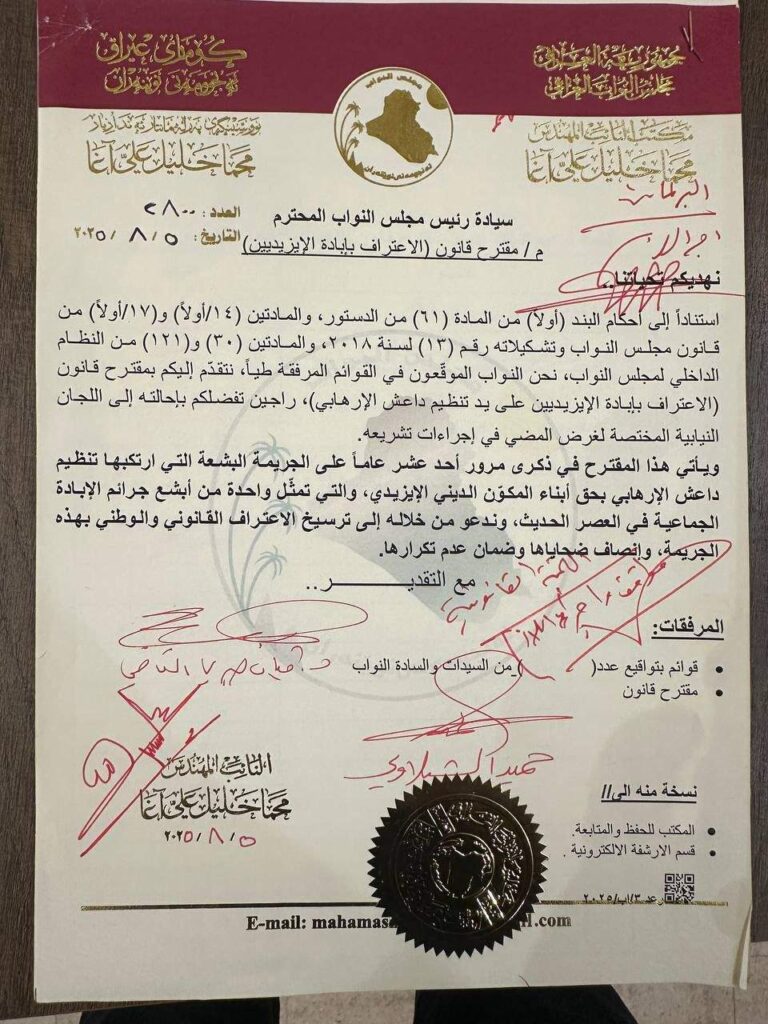 جمهورية العراق
مجلس النواب العراقي
كۆماری عێراق
ئەنجومەنی نوێنەران
مجلس النواب
ئەنجومەنی نوێنەران
مكتب النائب المهندس
محما خليل علي آغا
محما خليل علي آغا
العدد: ٢٨٠٠
التاريخ: ٢٠٢٥/٨/٥
سيادة رئيس مجلس النواب المحترم
م / مقترح قانون (الاعتراف بإبادة الإيزيديين)
نهديكم تحياتنا..
استناداً إلى أحكام البند (أولاً) من المادة (٦١) من الدستور، والمادتين (١٤/أولاً) و(١٧/أولاً) من
قانون مجلس النواب وتشكيلاته رقم (١٣) لسنة ٢٠١٨، والمادتين (٣٠) و(١٢١) من النظام
الداخلي لمجلس النواب، نحن النواب الموقّعون في القوائم المرفقة طياً، نتقدّم إليكم بمقترح قانون
(الاعتراف بإبادة الإيزيديين على يد تنظيم داعش الإرهابي)، راجين تفضلكم بإحالته إلى اللجان
النيابية المختصة لغرض المضي في إجراءات تشريعه.
ويأتي هذا المقترح في ذكرى مرور أحد عشر عاماً على الجريمة البشعة التي ارتكبها تنظيم
داعش الإرهابي بحق أبناء المكوّن الديني الإيزيدي، والتي تمثّل واحدة من أبشع جرائم الإبادة
الجماعية في العصر الحديث، وندعو من خلاله إلى ترسيخ الاعتراف القانوني والوطني بهذه
الجريمة، وإنصاف ضحاياها وضمان عدم تكرارها.
مع التقديـــــــر..
اللجنة القانونية
المرفقات:
• قوائم بتواقيع عدد( ) من السيدات والسادة النواب
• مقترح قانون
حميد الشبلاوي
النائب المهندس
محما خليل علي آغا
٢٠٢٥/٨/٥
نسخة منه الى//
• المكتب للحفظ والمتابعة.
• قسم الارشفة الالكترونية .
رعد ٣/اب/٢٠٢٥
E-mail: